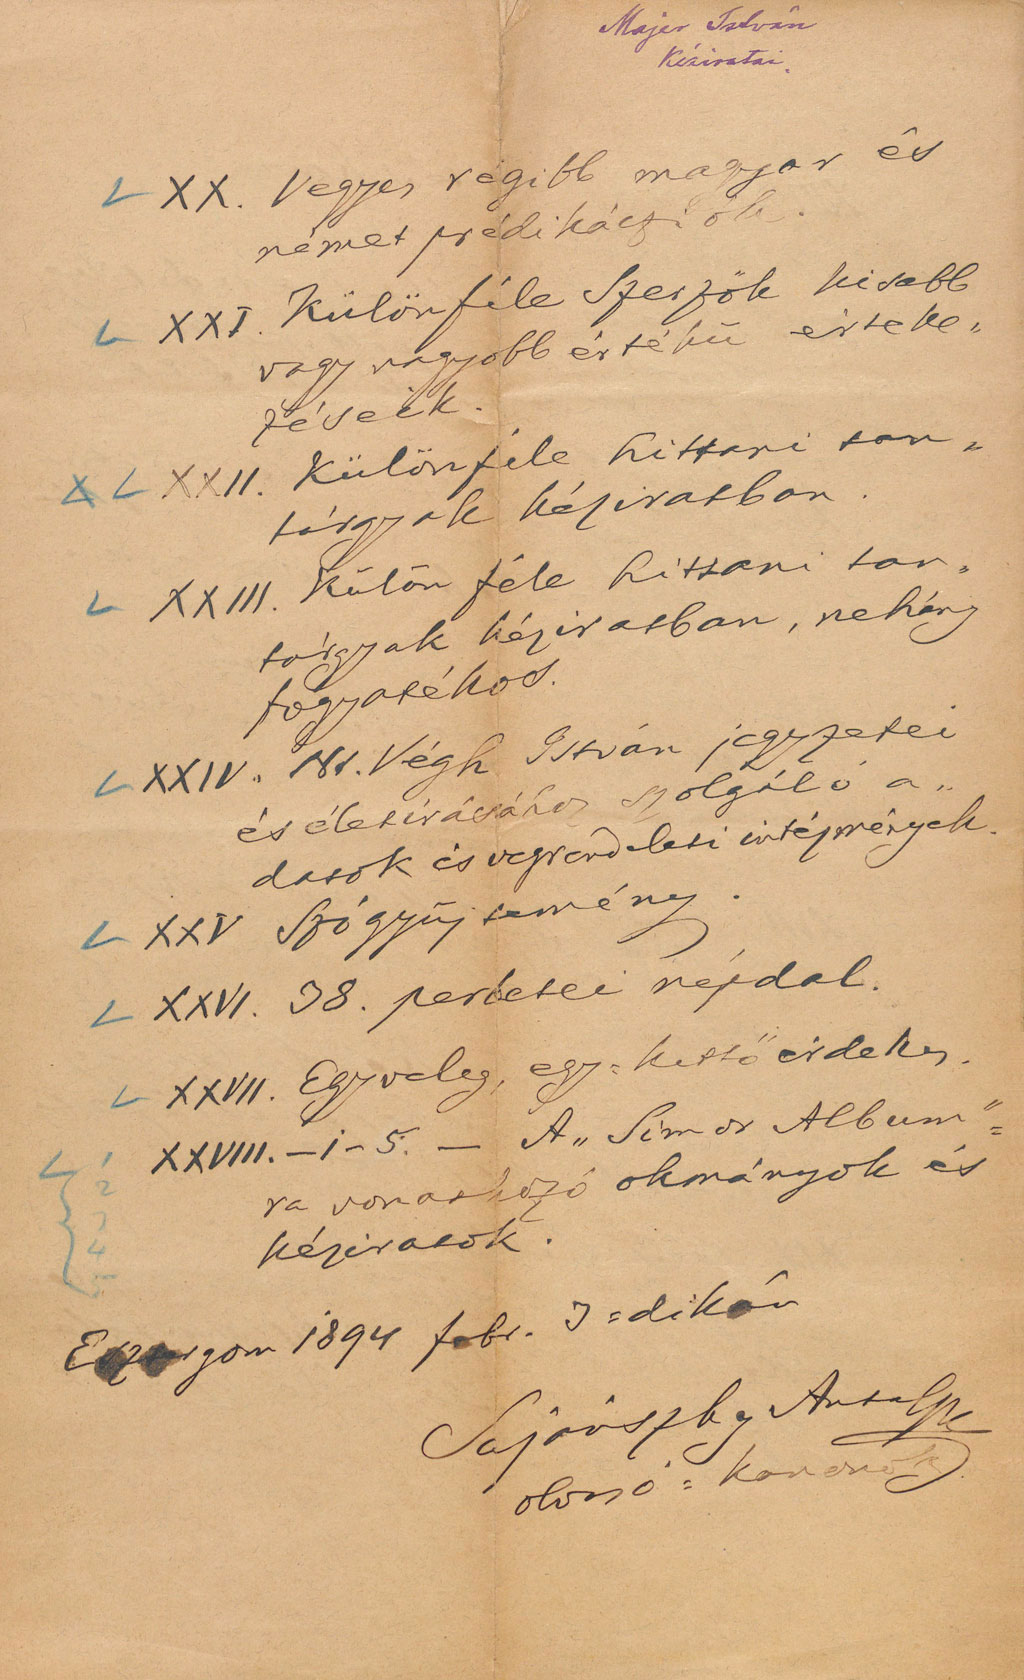 Majer István
Kéziratai.
XX. Vegyes régibb magyar és
német prédikácziók.
XXI. Különféle Szerzők kisebb
vagy nagyobb értékű érteke„
zéseik.
XXII. Különféle hittani tan„
tárgyak kéziratban.
XXIII. Külön féle hittani tan„
tárgyak kéziratban, nehány
fogyatékos.
XXIV. Végh István jegyzetei
és életirásához szolgáló a„
datok és végrendeleti intézmények.
XXV Szógyűjtemény.
XXVI. 38. perbetei népdal.
XXVII. Egyveleg, egy=kettő érdekes.
XXVIII.–1–5. – A „Simor Album"=
1
2
3
4
5
ra vonatkozó okmányok és
kéziratok.
Esztergom 1894 febr. 3=dikán
Sujánszky Antal
olvasó=kanonok